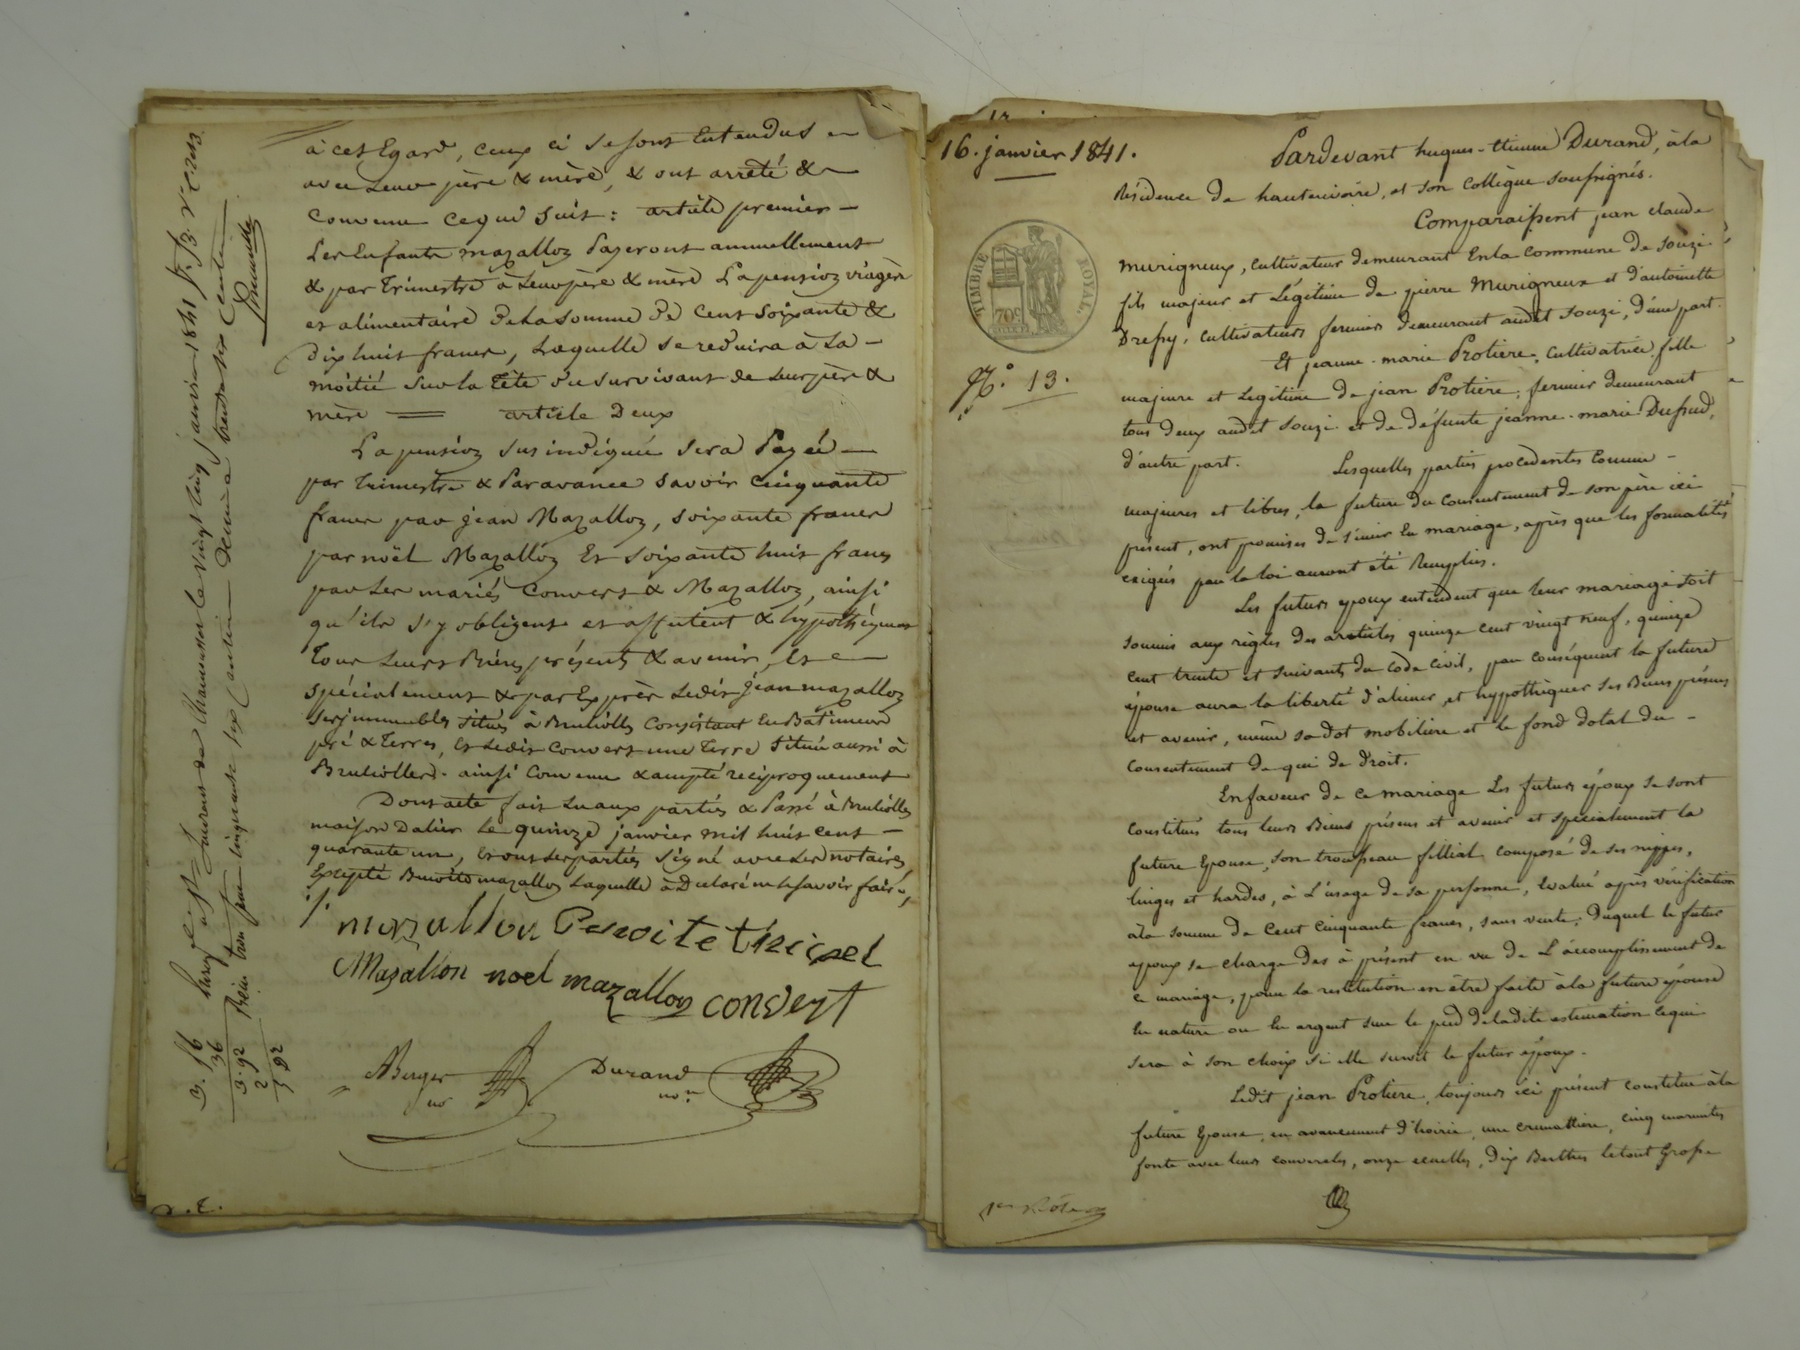 à cet Egard, ceux ci se sont Entendus
avec Leurs père & mère, & ont arrêté &
Convenu ce qui suit : article premier
Les Enfants mazallon Payeront annuellement
& par Trimestre à Leurs père & mère La pension viagère
et alimentaire De La Somme De Cent Soixante &
Dix huit francs, Laquelle se reduira à La
moitié sur la Tête du survivant de Leurs père &
mère article Deux
La pension sus indiquée sera Payée
par Trimestre & Par avance Savoir Cinquante
francs par jean Mazallon, soixante francs
par noël Mazallon Et Soixante huit francs
par Les mariés Convers & Mazallon, ainsi
qu'ils s'y obligent et affectent & hypothèquent
Tous Leurs Biens présents & avenir, Et
spécialement & par Exprès Ledit jean mazallon
ses immeubles situés à Brullioles Consistant En Batiments
pré & Terres, Et Ledit Convers une Terre située aussi à
Brullioles. ainsi Convenu & accepté réciproquement
Dont acte fait Lu aux parties & Passé à Brullioles
maison Dalier Le quinze janvier mil huit cent
quarante un, Et ont Les parties Signé avec Les notaires,
Excepté Benoite mazallon Laquelle à Declaré ne Le savoir faire
mazallon Benoite
Mazallon noel mazallon convert
Berger Durand
nre
16. janvier 1841.
TIMBRE ROYAL
70c
No. 13.
Pardevant hugues-etienne Durand, à la
Résidence de hauterivoire, et son Collègue soussignés.
Comparaissent jean claude
Murigneux, Cultivateur demeurant En la Commune de Souzi
fils majeur et Légitime de pierre Murigneux et d'antoinette
Drefry, Cultivateurs fermiers demeurant audit Souzi, d'une part.
Et jeanne-marie Protiere, Cultivatrice, fille
majeure et Legitime de jean Protiere, fermier demeurant
tous deux audit Souzi et de défunte jeanne-marie
d'autre part. Lesquelles parties procedentes Comme
majeures et libres, la future du Consentement de son père ici
présent, ont promises de s'unir En mariage, après que les formalités
exigées par la loi auront été Remplies.
Les futurs epoux entendent que leur mariage soit
soumis aux règles des articles quinze cent vingt neuf, quinze
cent trente et suivants du Code Civil, par conséquent la future
épouse aura la liberté d'aliener, et hypothèquer ses Biens présens
et avenir, même sa dot mobiliere et le fond dotal du
Consentement de qui de Droit.
En faveur de ce mariage Les futurs époux se sont
Constitués tous leurs Biens présens et avenir et spécialement la
future Epouse, son trousseau fillial composé de ses nippes,
linges et hardes, à L'usage de sa personne, Evalué après vérification
à la somme de Cent Cinquante francs, sans vente; duquel le futur
epoux se charge dès à présent en vu de L'accomplissement de
ce mariage, pour la restitution en être faite à la future épouse
En nature ou En argent sur le pied de ladite estimation ce qui
sera à son choix si elle survit le futur époux.
Ledit jean Protiere, toujours ici présent constitue à la
future Epouse, en avancement d'hoirie, une cremalliere, cinq marmites
fonte avec leurs couvercles, onze ecuelles, dix Berthes le tout Grosse
1er Rôle